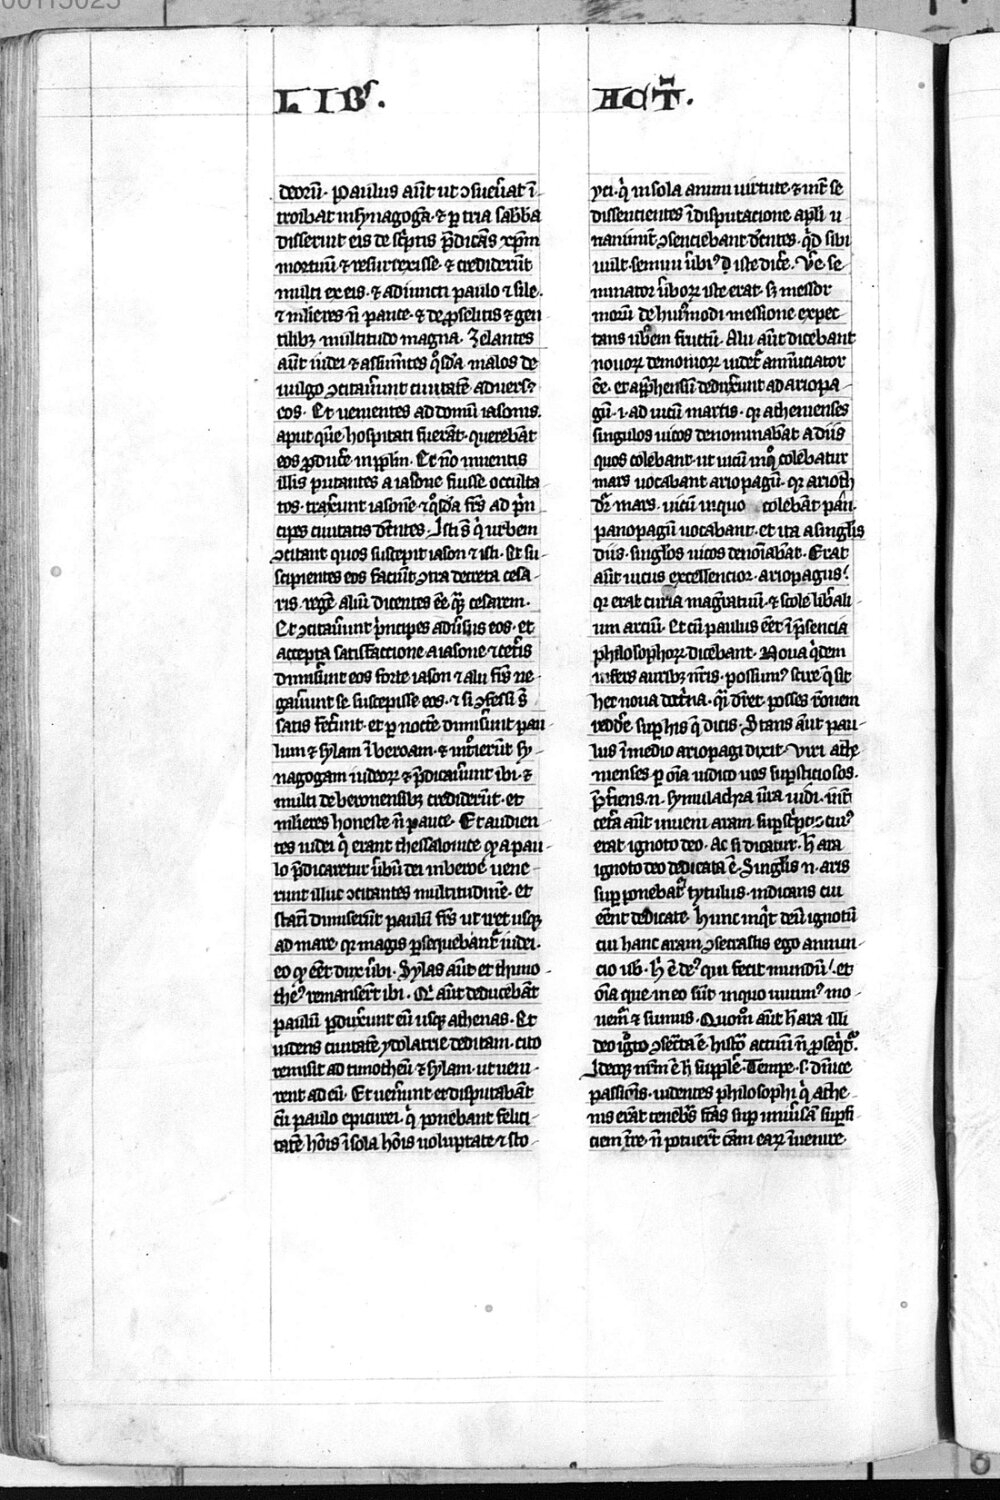 LIBʳ.
ACT̅.
deorū. Paulus aūt ut ꝯsueūat ī
troibat in synagogā. ⁊ ꝑ tria sabba
disseruit eis de sc̅pturis p̅dicās xp̅m
mortuū ⁊ resurrexisse. ⁊ crediderūt
multi ex eis. ⁊ adiuncti paulo ⁊ sile.
⁊ mlieres n̄ pauce. ⁊ de ꝓselitis ⁊ gen
tilibꝫ multitudo magna. Zelantes
aūt iudei ⁊ assum̄tes qͦsdā malos de
uulgo ꝯcitauerunt ciuitatē aduersꝰ
eos. Et uenientes ad domū iasonis.
aput quē hospitati fuerāt. querebāt
eos ꝓducē in ppl̄m. Et nō inuentis
illis putantes a iasone fuisse occulta
tos. traxunt iasonē ⁊ qͦsdā fr̄s ad p̅n
cipes ciuitatis dc̄entes. Isti s̄ q̇ urbem
ꝯcitant quos suscepit iason ⁊ isti. Et su-
scipientes eos faciūt ꝯtra decreta cesa-
ris. regē aliū dicentes ēe q̄ꝫ cesarem.
Et ꝯcitauūnt p̅ncipes aduūsus eos. et
accepta satisfactione a iasone ⁊ cet̄is
dimisūnt eos forte iason ⁊ alii fr̄s ne-
gauūnt se suscepisse eos. ⁊ si ꝯfessi s̄
satis fecūnt. et ꝑ noctē dimisūnt pau-
lum ⁊ sylam ī beroam. ⁊ intͦierūt sy-
nagogam iudeorꝝ ⁊ p̅dicauūnt ibi. ⁊
multi de beronensibꝫ crediderūt. et
mlieres honeste n̄ pauce. Et audien
tes iudei q̇ erant thessalonice ꝙ a pau-
lo p̅dicaretur ūbū dei in beroe uene-
runt illuc ꝯcitantes multitudinē. et
statī dimiserūt paulū fr̄s ut iret usqꝫ
ad mare. qꝛ magis ꝑsequebant̄ iudei.
eo ꝙ eēt dux ūbi. Sylas aūt et thimo-
theꝰ remanserūt ibi. Qͥ aūt deducebāt
paulū ꝑduxunt eū usqꝫ athenas. Et
uidens ciuitatē ydolatrie deditam. cito
remisit ad timotheū ⁊ sylam. ut ueni-
rent ad eū. Et uenūnt et disputabāt
cū paulo epicurei. q̇ ponebant felici-
tatē hōis ī sola hōis uoluptate ⁊ sto-
yci. q̇ in sola animi uirtute. ⁊ int̄ se
dissentientes ī disputacione apl̄i u-
nanimit̄ ꝯsenciebant dc̄entes. q̇d sibi
uult seminiūbiꝰ ꝺ iste dic̄e. Ue̅ se-
minator ūborꝝ iste erat. sꝫ messor
morū de huiꝰmodi messione expec-
tans ubēm fructū. Alii aūt dicebant
nouorꝝ demoniorꝝ uidet̄ annūciator
ēe. et app̅hensū deduxunt ad ariopa-
gū .i. ad uicū martis. qꝛ athenienses
singulos uicos denominabāt a diis
quos colebant. ut uicū in qͦ colebatur
mars uocabant ariopagū. qꝛ arioth
dr̄ mars. uicū in quo colebāt pan.
panopagū uocabant. et ita a singl̄is
diis. singl̄os uicos denoīabāt. Erat
aūt uicus excellencior. ariopagus.
qꝛ erat curia mag̅ratuū. ⁊ scole lib̄ali-
um arciū. Et cū paulus eēt ī p̅sencia
philosophorꝝ dicebant. Noua q̇dem
infers auribꝫ nr̄is. possumꝰ scire q̄ sit
hec noua doct̄na. q̇ dr̄et. posses rōnem
redde̅ suꝑ his q̄ dicis. Stans aūt pau-
lus ī medio ariopagi dixit. Viri athe-
nienses ꝑ oīa uidico uos suꝑsticiosos.
P̅t̄iens .n. symulachra ūra uidi. int̄
cet̄a aūt inueni aram. suꝑsc̅ptꝯ cuiꝰ
erat ignoto deo. Ac si dicatur. h̅ ara
ignoto deo dedicata ē. Singl̄is .n. aris
suꝑ ponebat̄ tytulus. indicans cui
eēnt dedicate. hunc inq̇t deū ignotū
cui hanc aram ꝯsecrastis ego annun-
cio uob̄. h̅ ē deꝰ qui fecit mundū. et
oīa que in eo sūt in quo uiuimꝰ mo-
uem̄ ⁊ sumus. Quom̄ aūt h̅ ara illi
deo igͦto ꝯsec̄ta ē. histoͣ actuū n̄ ꝓseqͥtͬ.
Ideoqꝫ nr̄m ē h̅ supple̅. Tempe .s. dn̄ice
passiōis. uidentes philosophi q̇ athe-
nis erāt tenebͣs fc̄as suꝑ uniūsā suꝑfi-
ciem tr̄e. n̄ potuer̄t cām earꝝ īuenire